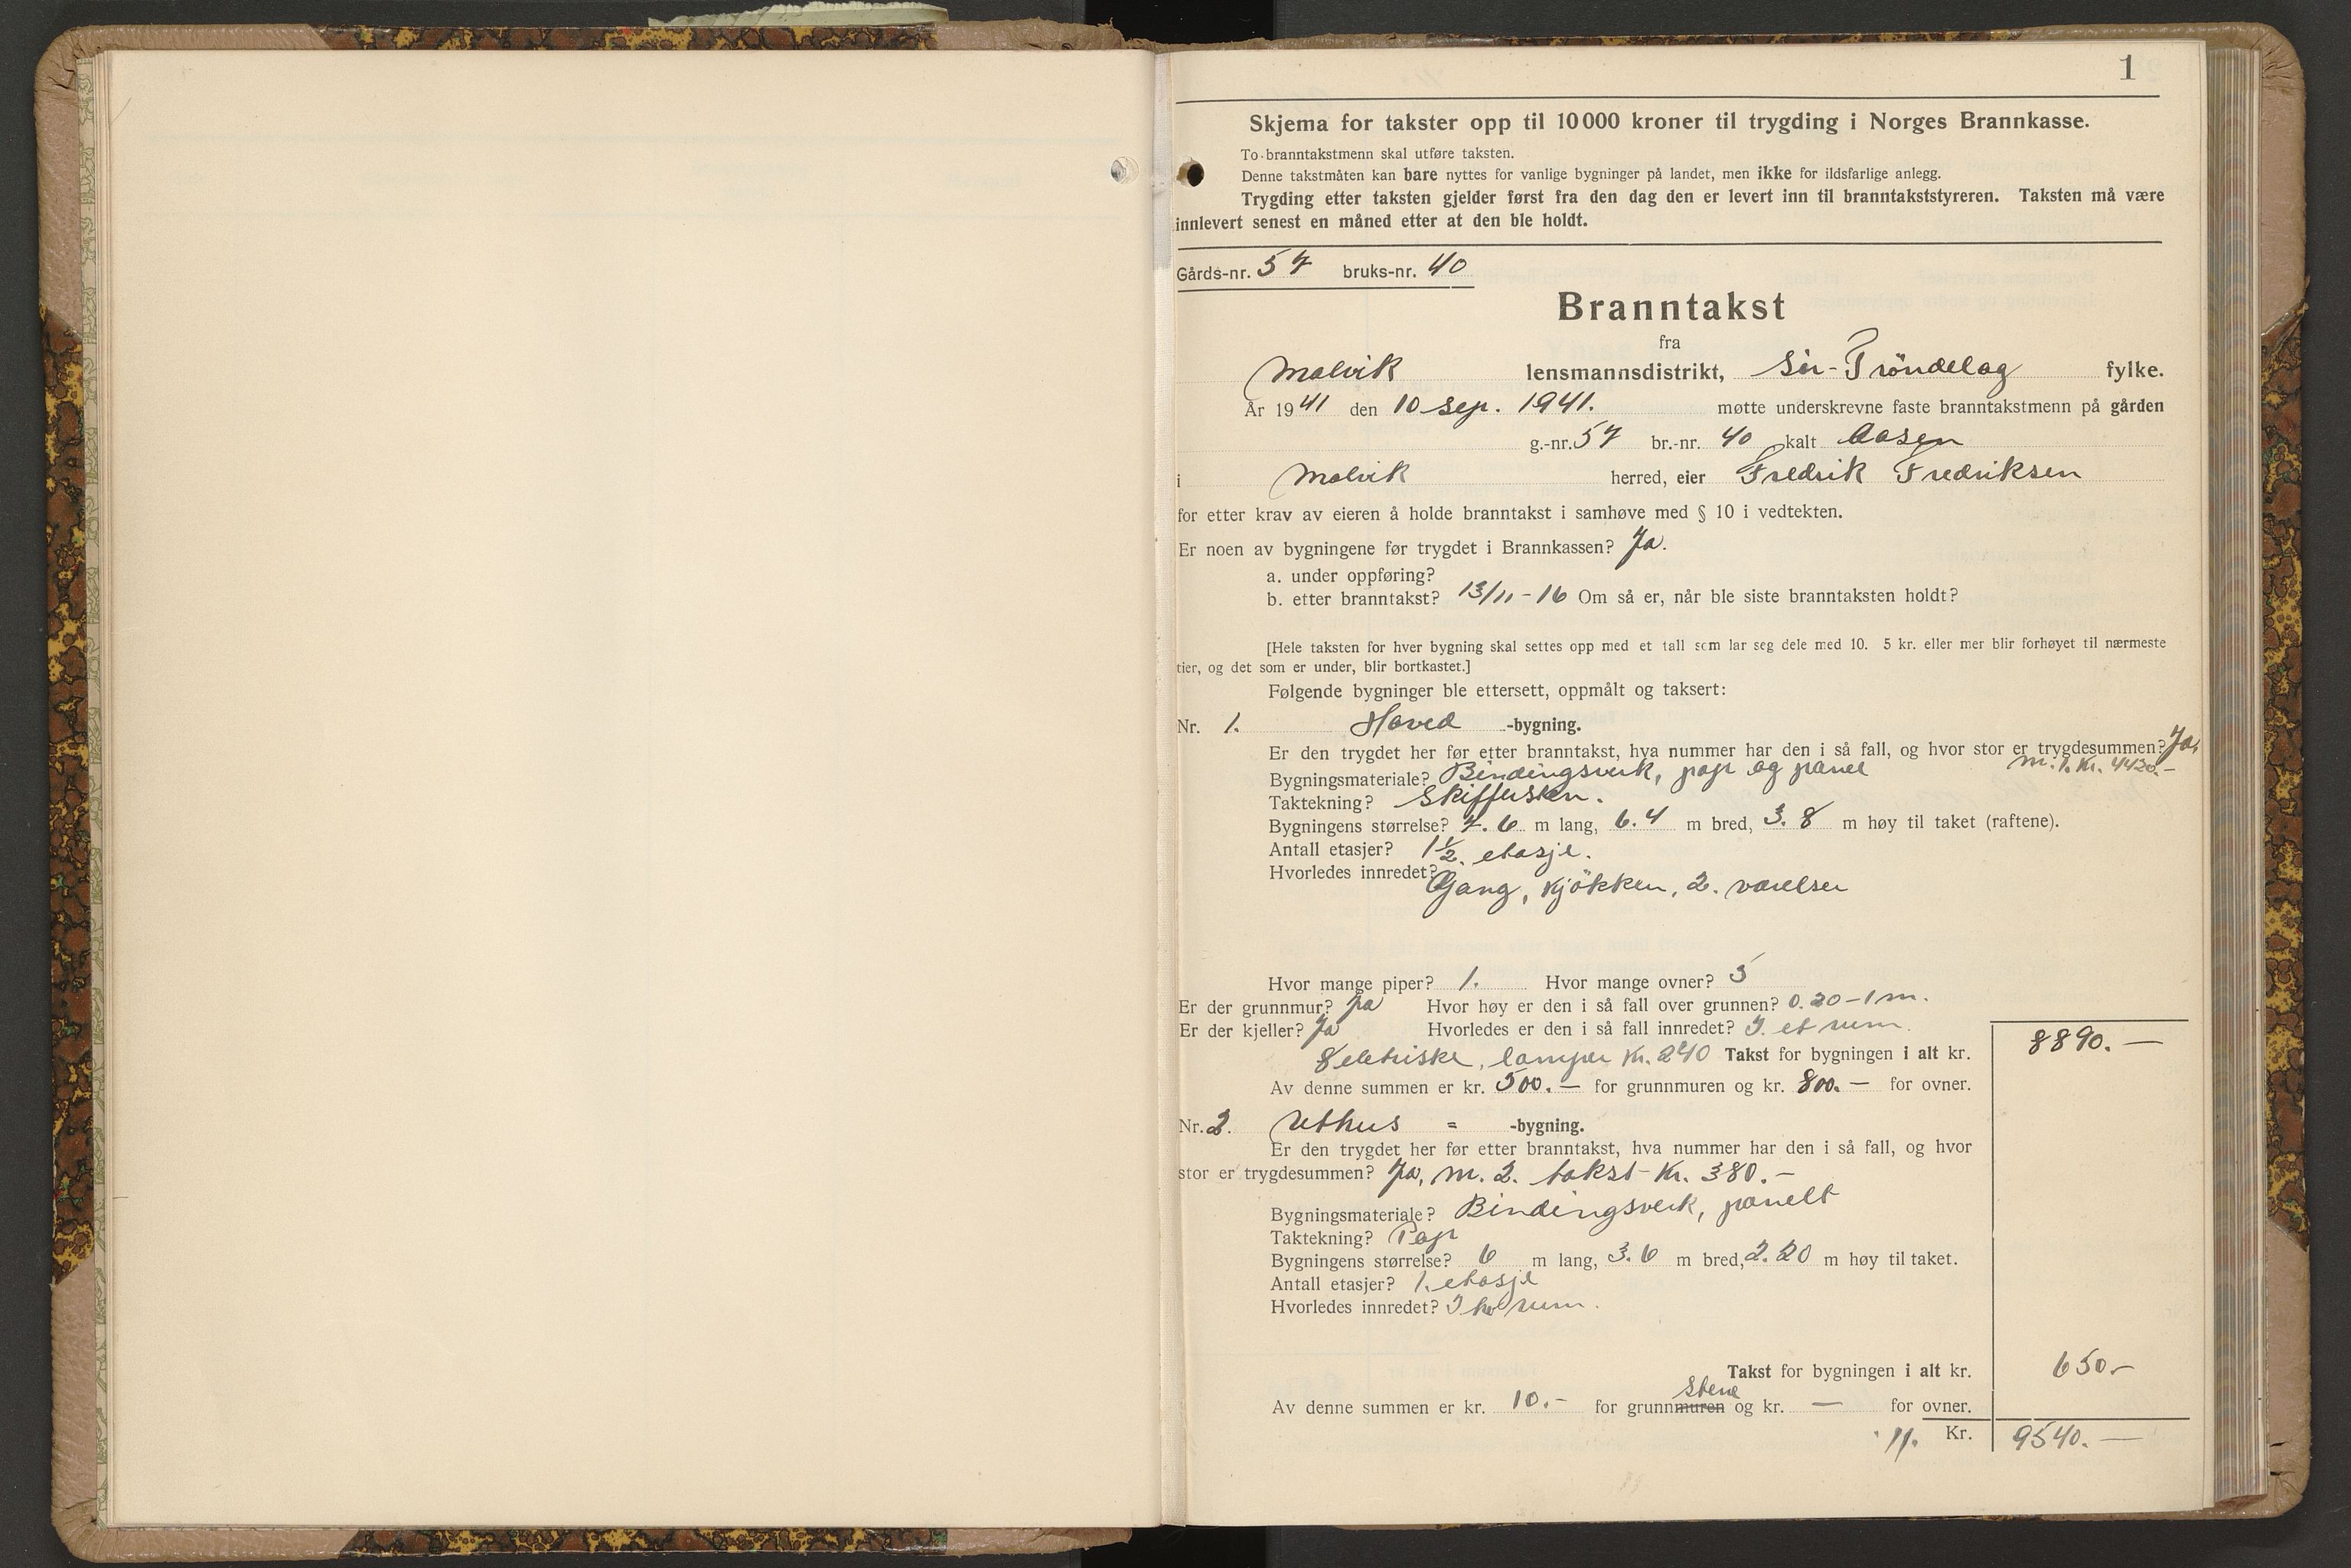 1
Skjema for takster opp til 10 000 kroner til trygding i Norges Brannkasse.
To branntakstmenn skal utføre taksten.
Denne takstmåten kan bare nyttes for vanlige bygninger på landet, men ikke for ildsfarlige anlegg.
Trygding etter taksten gjelder først fra den dag den er levert inn til branntakststyreren. Taksten må være
innlevert senest en måned etter at den ble holdt.
Gårds-nr. 57 bruks-nr. 40
Branntakst
fra
Malvik lensmannsdistrikt, Sør-Trøndelag fylke.
År 1941 den 10 sep. 1941. møtte underskrevne faste branntakstmenn på gården
g.-nr. 57 br.-nr. 40 kalt Aasen
i Malvik herred, eier Fredrik Fredriksen
for etter krav av eieren å holde branntakst i samhøve med § 10 i vedtekten.
Er noen av bygningene før trygdet i Brannkassen? Ja.
a. under oppføring?
b. etter branntakst? 13/11-16 Om så er, når ble siste branntaksten holdt?
[Hele taksten for hver bygning skal settes opp med et tall som lar seg dele med 10. 5 kr. eller mer blir forhøyet til nærmeste
tier, og det som er under, blir bortkastet.]
Følgende bygninger ble ettersett, oppmålt og taksert:
Nr. 1. Hoved -bygning.
Er den trygdet her før etter branntakst, hva nummer har den i så fall, og hvor stor er trygdesummen? Ja,
m. 1. Kr. 4420.-
Bygningsmateriale? Bindingsverk, pap og panel
Taktekning? Skiffersten.
Bygningens størrelse? 7.6 m lang, 6.4 m bred, 3.8 m høy til taket (raftene).
Antall etasjer? 1 1/2. etasje.
Hvorledes innredet? Gang, kjökken, 2. værelser
Hvor mange piper? 1. Hvor mange ovner? 5
Er der grunnmur? Ja Hvor høy er den i så fall over grunnen? 0.20-1 m.
Er der kjeller? Ja Hvorledes er den i så fall innredet? I et rum.
8 eletriske, lamper Kr. 240 Takst for bygningen i alt kr. 8890.—
Av denne summen er kr. 500.— for grunnmuren og kr. 800.— for ovner.
Nr. 2. Uthus = -bygning.
Er den trygdet her før etter branntakst, hva nummer har den i så fall, og hvor
stor er trygdesummen? Ja, m. 2. takst Kr. 380.-
Bygningsmateriale? Bindingsverk, panelt
Taktekning? Pap
Bygningens størrelse? 6 m lang, 3.6 m bred, 2.20 m høy til taket.
Antall etasjer? 1. etasje
Hvorledes innredet? I rum.
Takst for bygningen i alt kr. 650.-
Stene
Av denne summen er kr. 10.- for grunnmuren og kr. — for ovner.
Kr. 9540.—